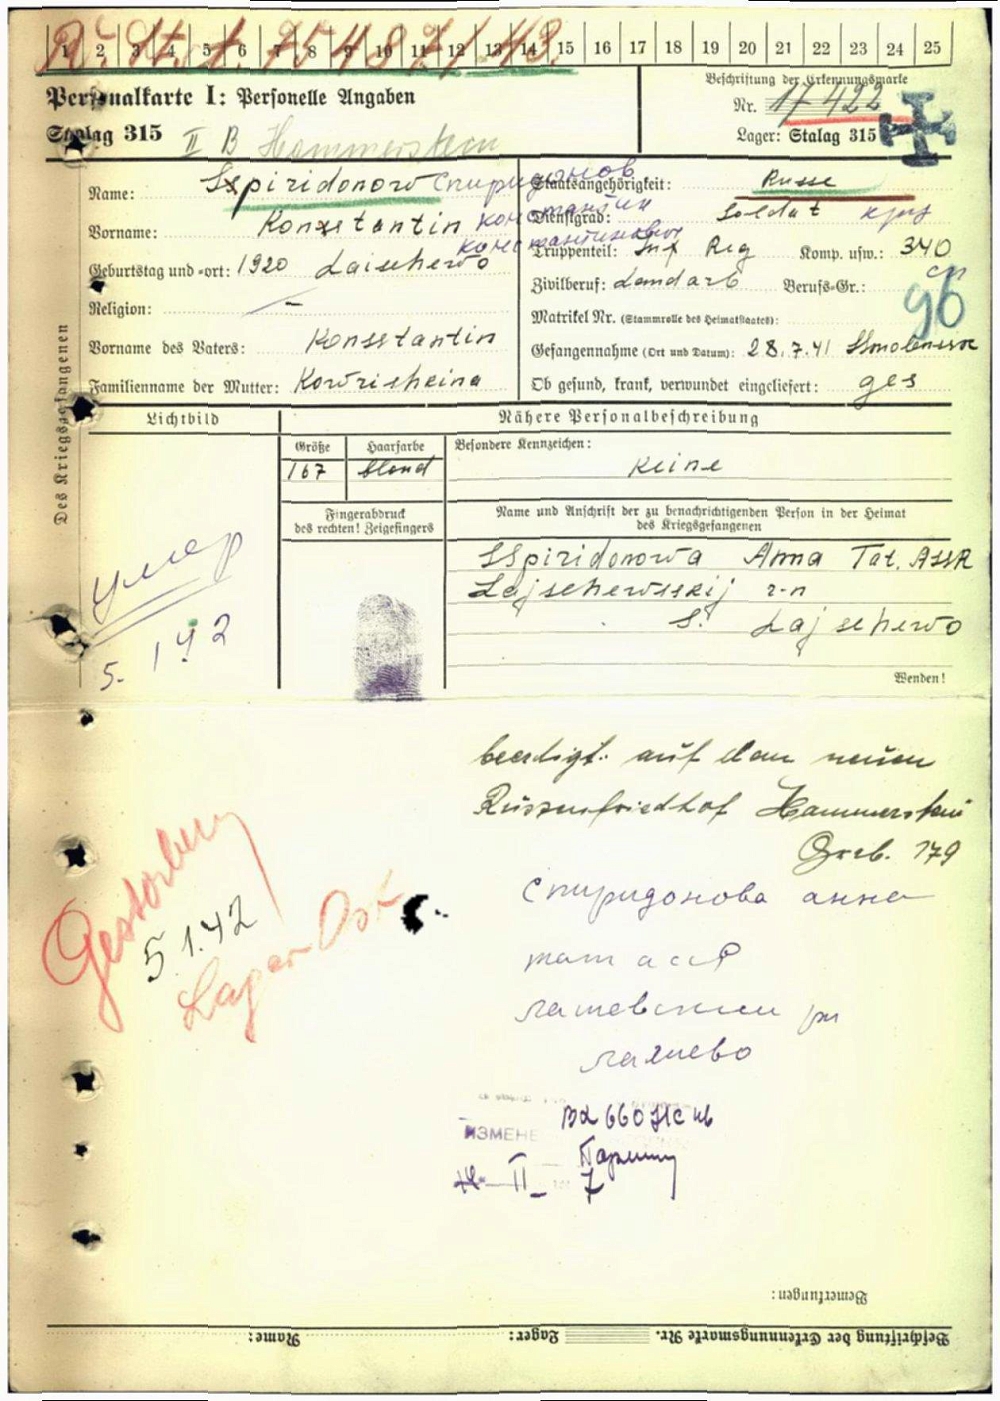 1 2 3 4 5 6 7 8 9 10 11 12 13 14 15 16 17 18 19 20 21 22 23 24 25
Personalkarte I: Personelle Angaben
Stalag 315
II B Hammerstein
Beschriftung der Erkennungsmarke
Nr. 17422
Lager: Stalag 315
Des Kriegsgefangenen
Name: Sspiridonow Спиридонов
Vorname: Konstantin Константин
Константинович
Geburtstag und -ort: 1920 Laischewo
Religion: —
Vorname des Vaters: Konsstantin
Familienname der Mutter: Kowrischeina
Staatsangehörigkeit: Russe
Dienstgrad: Soldat
Truppenteil: Inf Reg Komp. usw.: 340
сп
Zivilberuf: Landarb Berufs-Gr.:
96
Matrikel Nr. (Stammrolle des Heimatstaates):
Gefangennahme (Ort und Datum): 28.7.41 Smolensk
Ob gesund, krank, verwundet eingeliefert: ges
Lichtbild
Nähere Personalbeschreibung
Größe Haarfarbe
167 blond
Besondere Kennzeichen:
keine
Fingerabdruck
des rechten! Zeigefingers
Name und Anschrift der zu benachrichtigenden Person in der Heimat
des Kriegsgefangenen
SSpiridonowa Anna Tat. ASSR
Lajschewsskij r-n
S. Lajschewo
Wenden!
умер
5. 1 42
beerdigt auf dem neuen
Russenfriedhof Hammerstein
Grab. 179
Gestorben
5.1.42
Lager Ost
Спиридонова анна
тат асср
лашевский рн
лашево
ИЗМЕНЕ
II 7
Bemerkungen:
Name: Lager: Beschriftung der Erkennungsmarke Nr.